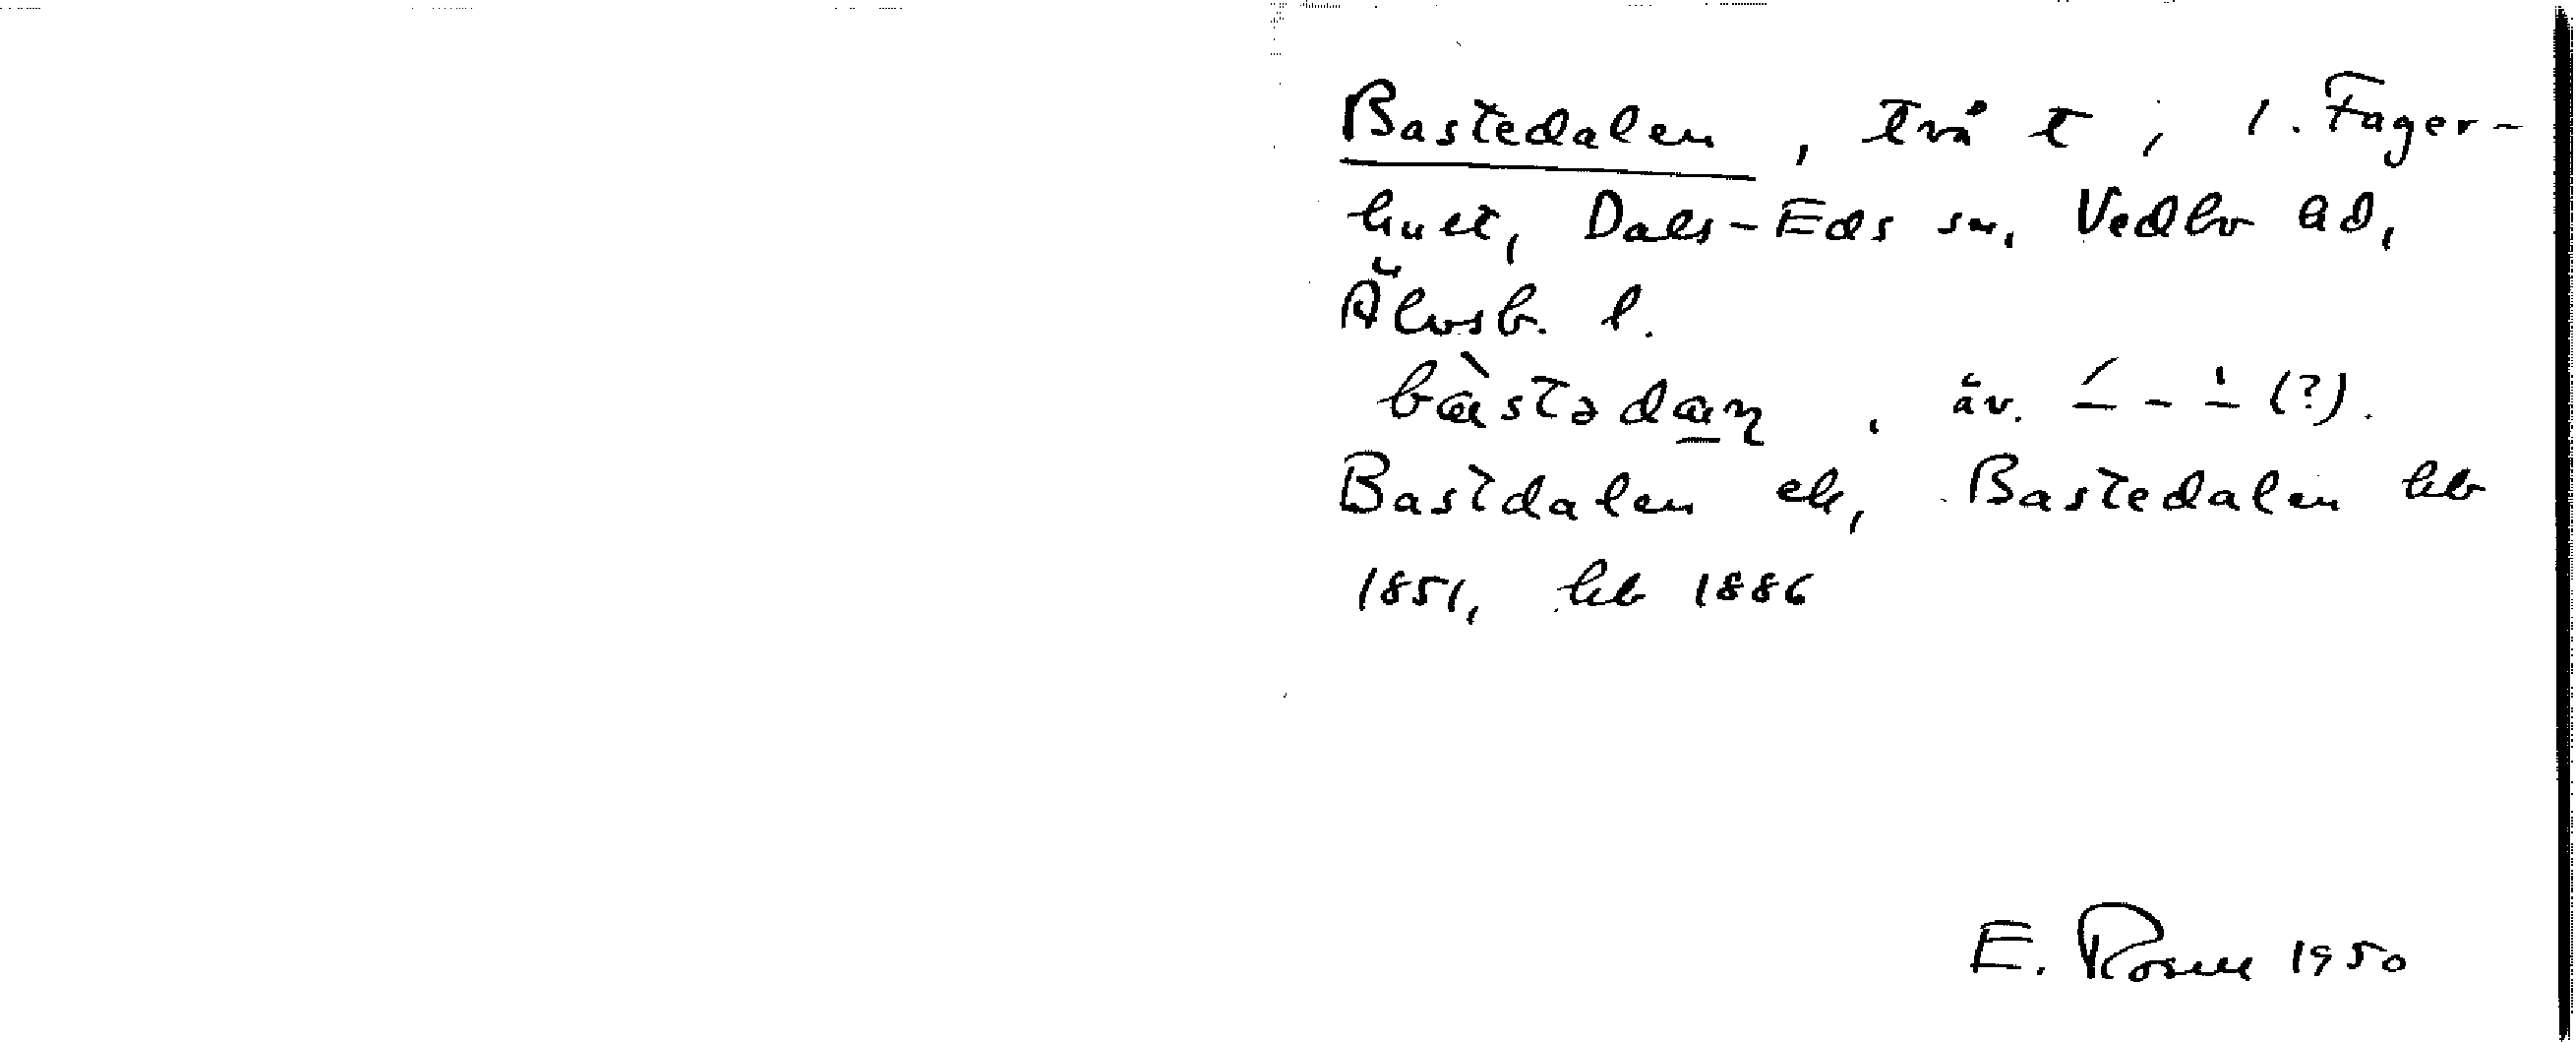 Bastedalen, två t, 1. Fager-
hult, Dals-Eds sn, Vedbo hd,
Älvsb. l.
bàstədaṉ, äv. ´– – ˈ– (?).
Bastdalen ek, Bastedalen hb
1851, hb 1886
E. Rosell 1950